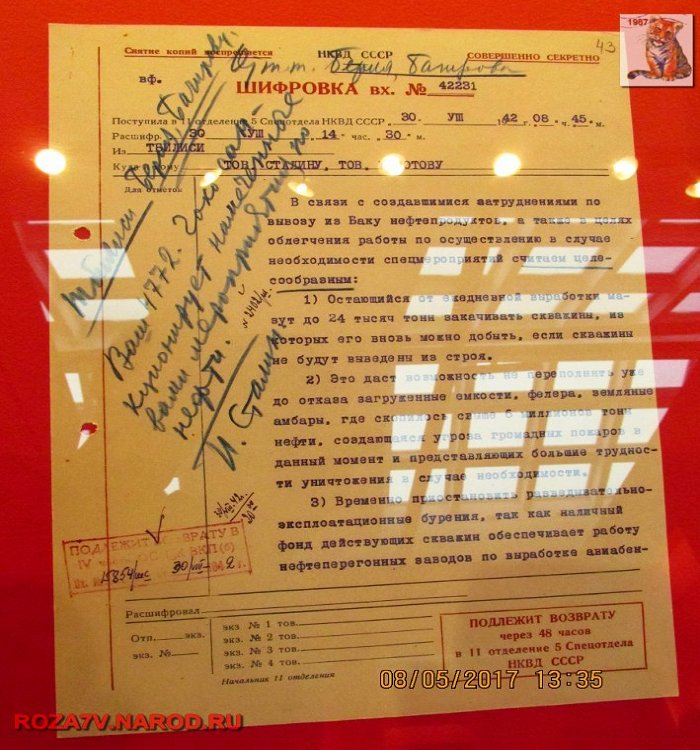 1987
43
Снятие копий воспрещается
НКВД СССР
СОВЕРШЕННО СЕКРЕТНО
вф.
От т.т. Берия, Багирова
ШИФРОВКА вх. № 42231
Поступила в 11 отделение 5 Спецотдела НКВД СССР 30. УШ 1942 г. 08 ч. 45 м.
Расшифр. 30 УШ 14 час. 30 м.
Из ТБИЛИСИ
Куда, кому ТОВ. СТАЛИНУ, ТОВ.
Для отметок
Тбилиси Берия, Багирову.
Ваш 4772. Гоко сан-
кционирует намеченные
вами мероприятия по
нефти.
И. Сталин.
В связи с создавшимися затруднениями по
вывозу из Баку нефтепродуктов, а также в целях
облегчения работы по осуществлению в случае
необходимости спецмероприятий считаем целе-
сообразным:
1) Остающийся от ежедневной выработки ма-
зут до 24 тысяч тонн закачивать скважины, из
которых его вновь можно добыть, если скважины
не будут выведены из строя.
2) Это даст возможность не переполнять уже
до отказа загруженные емкости, фелера, земляные
амбары, где скопилось свыше 6 миллионов тонн
нефти, создающаяся угроза громадных пожаров в
данный момент и представляющих большие труднос-
ти уничтожения в случае необходимости.
3) Временно приостановить разведывательно-
эксплоатационные бурения, так как наличный
фонд действующих скважин обеспечивает работу
нефтеперегонных заводов по выработке авиабен-
ПОДЛЕЖИТ ВОЗВРАТУ В
IV ВКП(б)
30/VIII 1942 г.
Расшифровал
Отп. экз.
экз. №
экз. № 1 тов.
экз. № 2 тов.
экз. № 3 тов.
экз. № 4 тов.
Начальник 11 отделения
ПОДЛЕЖИТ ВОЗВРАТУ
через 48 часов
в 11 отделение 5 Спецотдела
НКВД СССР
08/05/2017 13:35
ROZA7V.NAROD.RU